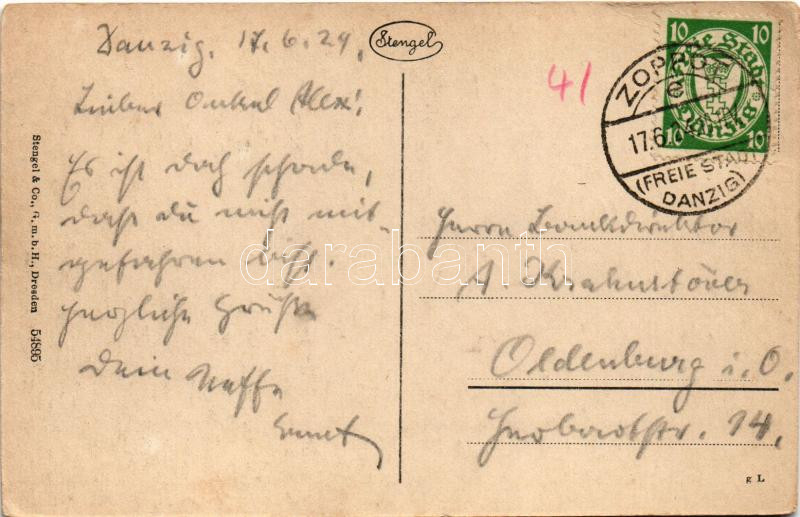 Danzig, 17.6.24.
Stengel
Lieber Onkel Alex!
Es ist doch schade,
daß du nicht mit-
gefahren bist.
herzliche Grüße
dein Neffe
Ernst
Stengel & Co., G.m.b.H., Dresden 54895
41
10 10
Freie Stadt
Danzig
10 10
ZOPPOT
e
17.6.
(FREIE STADT
DANZIG)
Herrn Bankdirektor
A. Krahnstöver
Oldenburg i. O.
Herbartstr. 14.
g L
darabanth